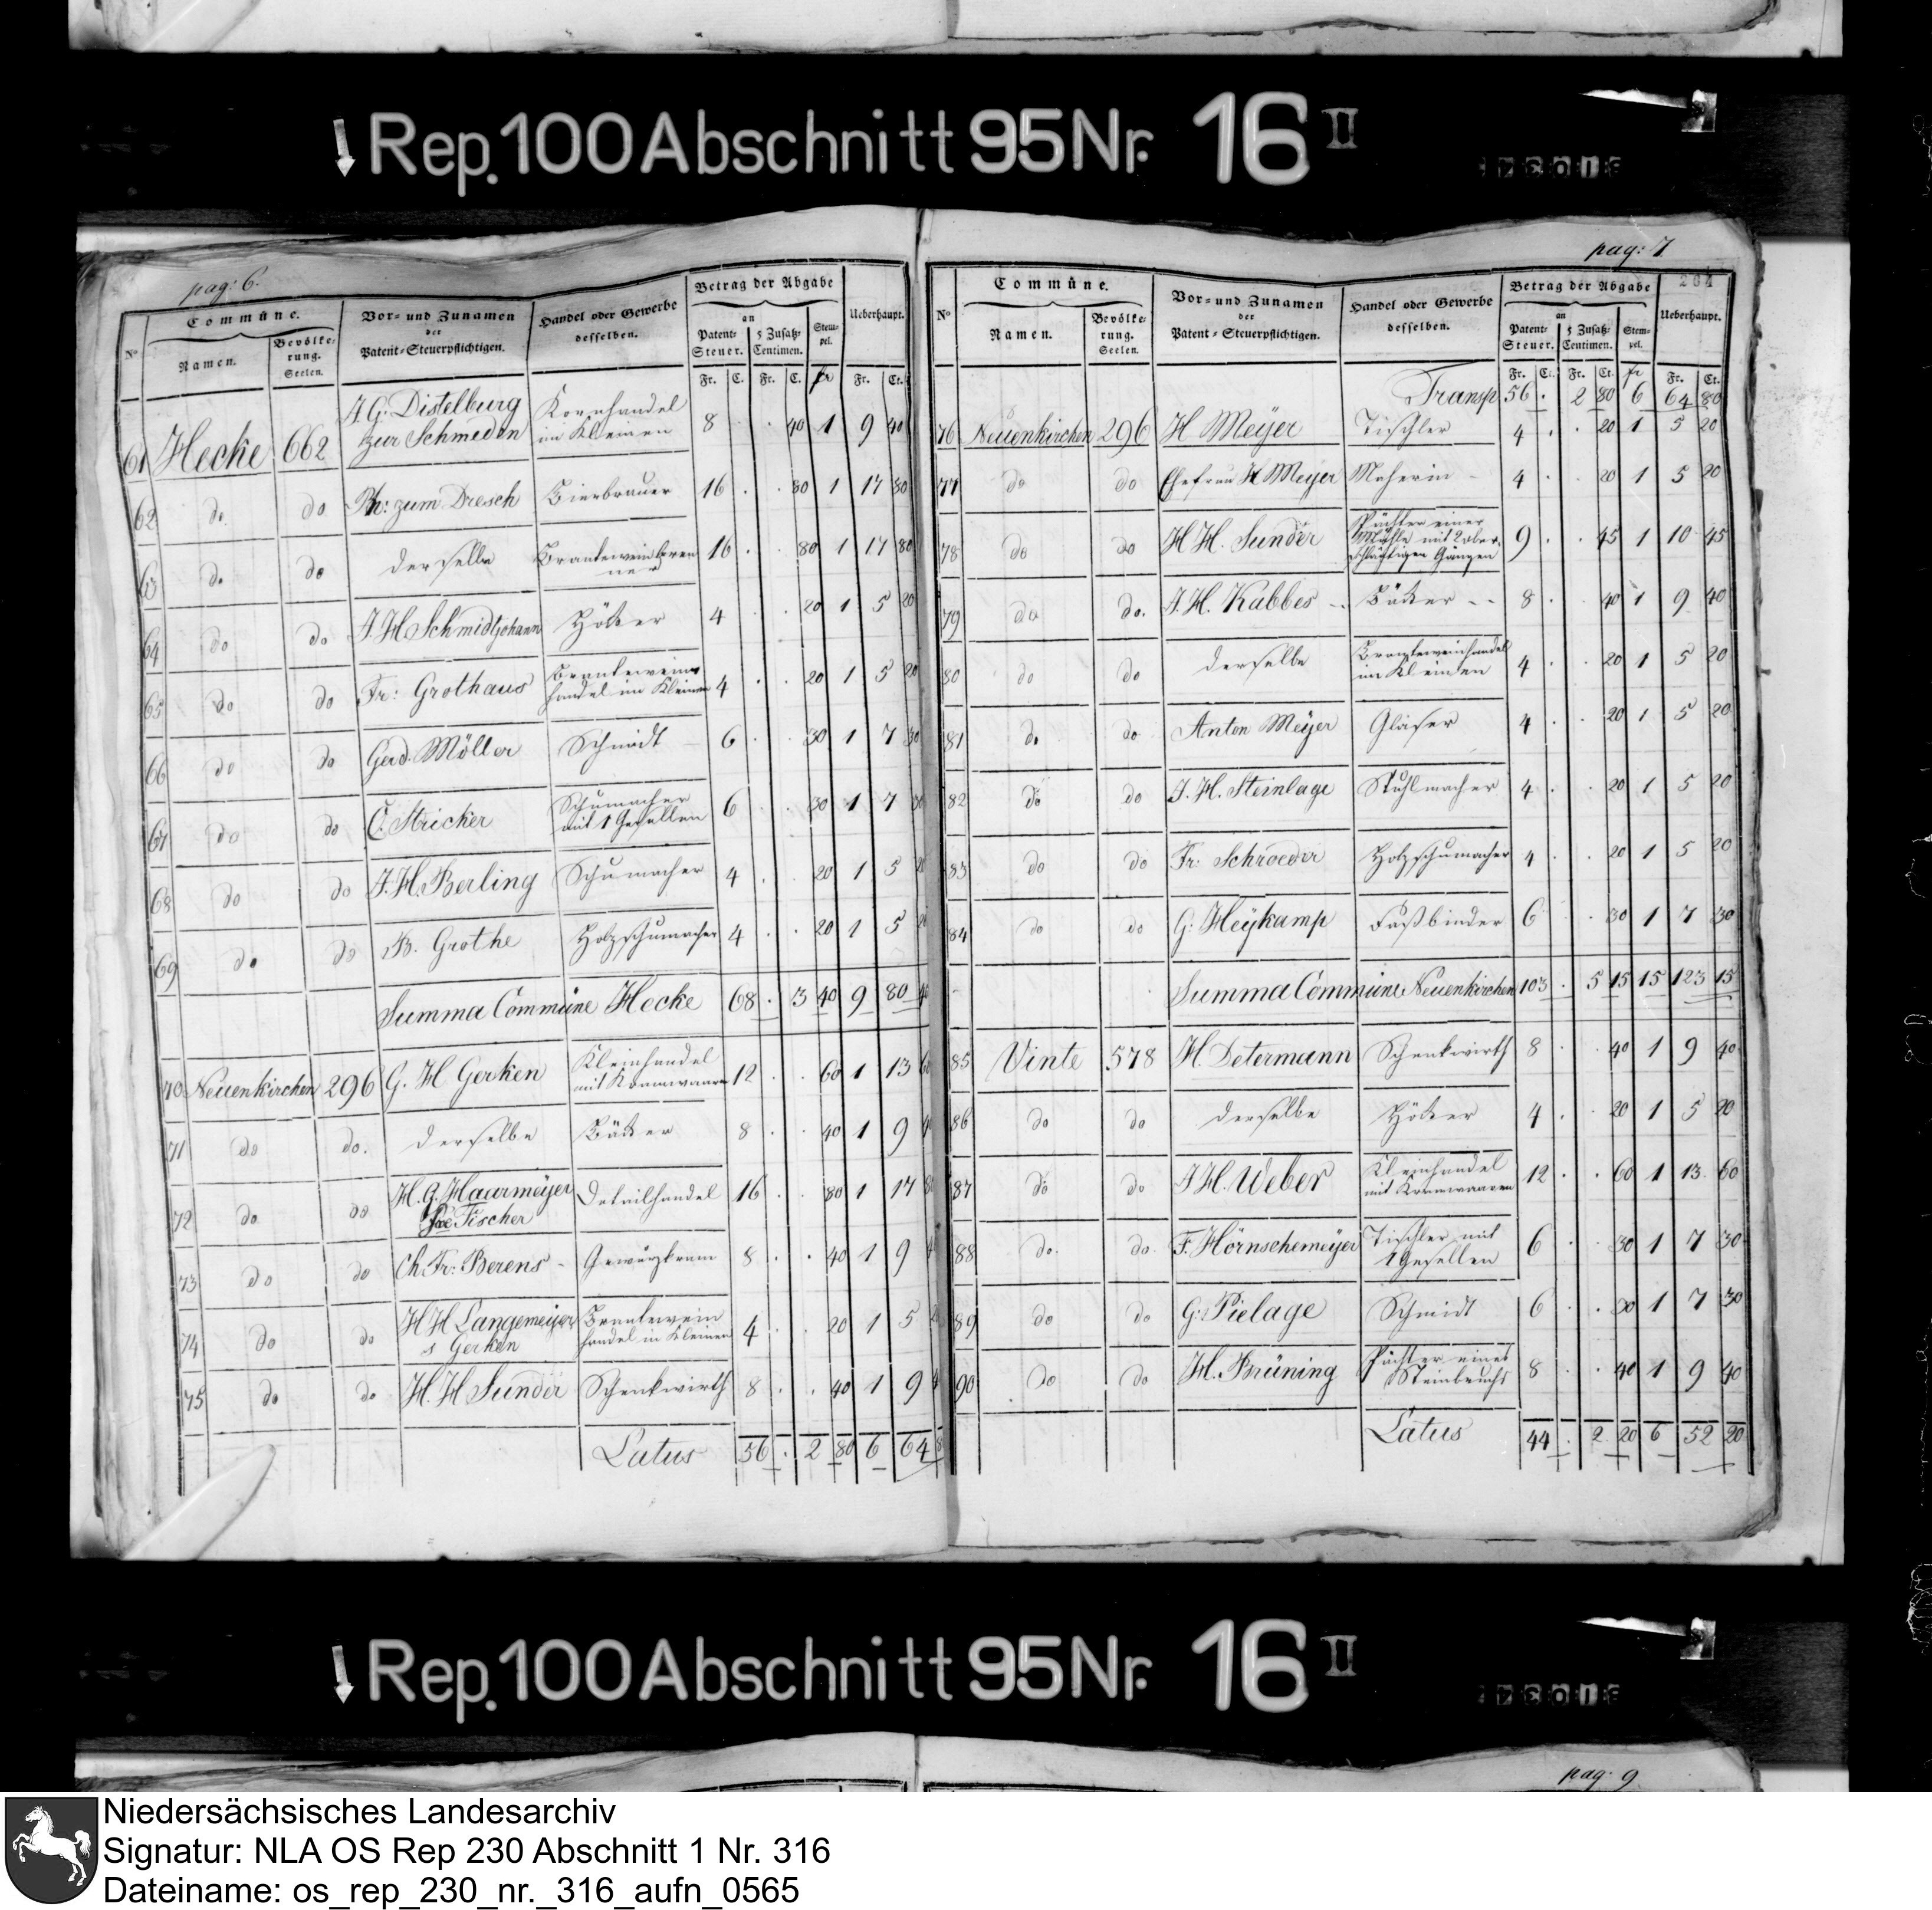 ↓ Rep. 100 Abschnitt 95 Nr. 16 II
pag: 6.
No
Commüne.
Namen.
Bevölke-
rung.
Seelen.
Vor- und Zunamen
der
Patent-Steuerpflichtigen.
Handel oder Gewerbe
desselben.
Betrag der Abgabe
an
Patent-
Steuer.
5 Zusatz-
Centimen.
Stem-
pel.
Ueberhaupt.
Fr. C. Fr. C. fr Fr. Ct.
61 Hecke 662 J. G. Distelburg zur Schmeden Kornhandel im Kleinen 8 . . 40 1 9 40
62 do do Ph: zum Dresch Bierbrauer 16 . . 80 1 17 80
63 do do derselbe Branteweinbrenner 16 . . 80 1 17 80
64 do do J. H. Schmidtjohann Höcker 4 . . 20 1 5 20
65 do do Fr: Grothaus Branteweinhandel im Kleinen 4 . . 20 1 5 20
66 do do Gerd. Möller Schmidt 6 . . 30 1 7 30
67 do do C. Stricker Schumacher mit 1 Gesellen 6 . . 30 1 7 30
68 do do J. H. Berling Schumacher 4 . . 20 1 5 20
69 do do B. Grothe Holzschumacher 4 . . 20 1 5 20
Summa Commüne Hecke 68 . 3 40 9 80 40
70 Neuenkirchen 296 G. H Gerken Kleinhandel mit Kramwaaren 12 . . 60 1 13 60
71 do do. derselbe Bäcker 8 . . 40 1 9 40
72 do do H. G. Haurmeÿer Fischer Detailhandel 16 . . 80 1 17 80
73 do do Ch. Fr: Berens Gewürzkram 8 . . 40 1 9 4
74 do do H H Langemeÿer s Gerken Brantewein handel im Kleinen 4 . . 20 1 5 2
75 do do H. H Sunder Schenkwirth 8 . . 40 1 9 4
Latus 56 . 2 80 6 64 8
pag: 7
264
No
Commüne.
Namen.
Bevölke-
rung.
Seelen.
Vor- und Zunamen
der
Patent-Steuerpflichtigen.
Handel oder Gewerbe
desselben.
Betrag der Abgabe
an
Patent-
Steuer.
5 Zusatz-
Centimen.
Stem-
pel.
Ueberhaupt.
Fr. Ct. Fr. Ct. fr Fr. Ct.
Transp 56 . 2 80 6 64 80
76 Neuenkirchen 296 H Meÿer Tischler 4 . . 20 1 5 20
77 do do Ehefrau H Meyer Näherin 4 . . 20 1 5 20
78 do do H H. Sunder Pächter einer Mühle mit 2 oberschlächtigen Gängen 9 . . 45 1 10 45
79 do do. J. H. Kabbes Bäcker 8 . . 40 1 9 40
80 do do derselbe Branteweinhandel im Kleinen 4 . . 20 1 5 20
81 do do Anton Meÿer Glaser 4 . . 20 1 5 20
82 do do J. H. Steinlage Stuhlmacher 4 . . 20 1 5 20
83 do do Fr: Schroeder Holzschumacher 4 . . 20 1 5 20
84 do do G: Heÿkamp Faßbinder 6 . . 30 1 7 30
Summa Commüne Neuenkirchen 103 . 5 15 15 123 15
85 Vinte 578 H. Determann Schenkwirth 8 . . 40 1 9 40
86 do do derselbe Höcker 4 . . 20 1 5 20
87 do do J H. Weber Kleinhandel mit Kramwaaren 12 . . 60 1 13. 60
88 do. do. F. Hörnschemeÿer Tischler mit 1 Gesellen 6 . . 30 1 7 30
89 do do G: Pielage Schmidt 6 . . 30 1 7 30
90 do do H. Brüning Pächter eines Steinbruchs 8 . . 40 1 9 40
Latus 44 . 2 20 6 52 20
↓ Rep. 100 Abschnitt 95 Nr. 16 II
pag: 9
Niedersächsisches Landesarchiv
Signatur: NLA OS Rep 230 Abschnitt 1 Nr. 316
Dateiname: os_rep_230_nr._316_aufn_0565